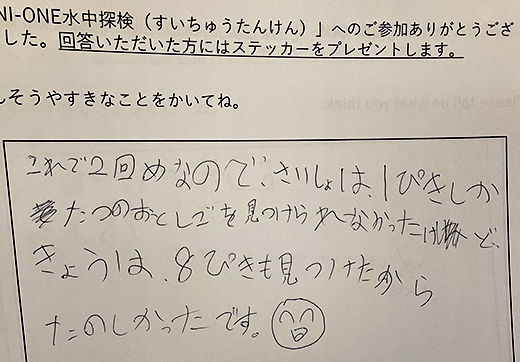 NI-ONE水中探検（すいちゅうたんけん）」へのご参加ありがとうござ
した。回答いただいた方にはステッカーをプレゼントします。
んそうやすきなことをかいてね。
これで2回めなので、さいしょは、1ぴきしか
たつのおとしごを見つけられなかったけど、
きょうは、8ぴきも見つけたから
たのしかったです。